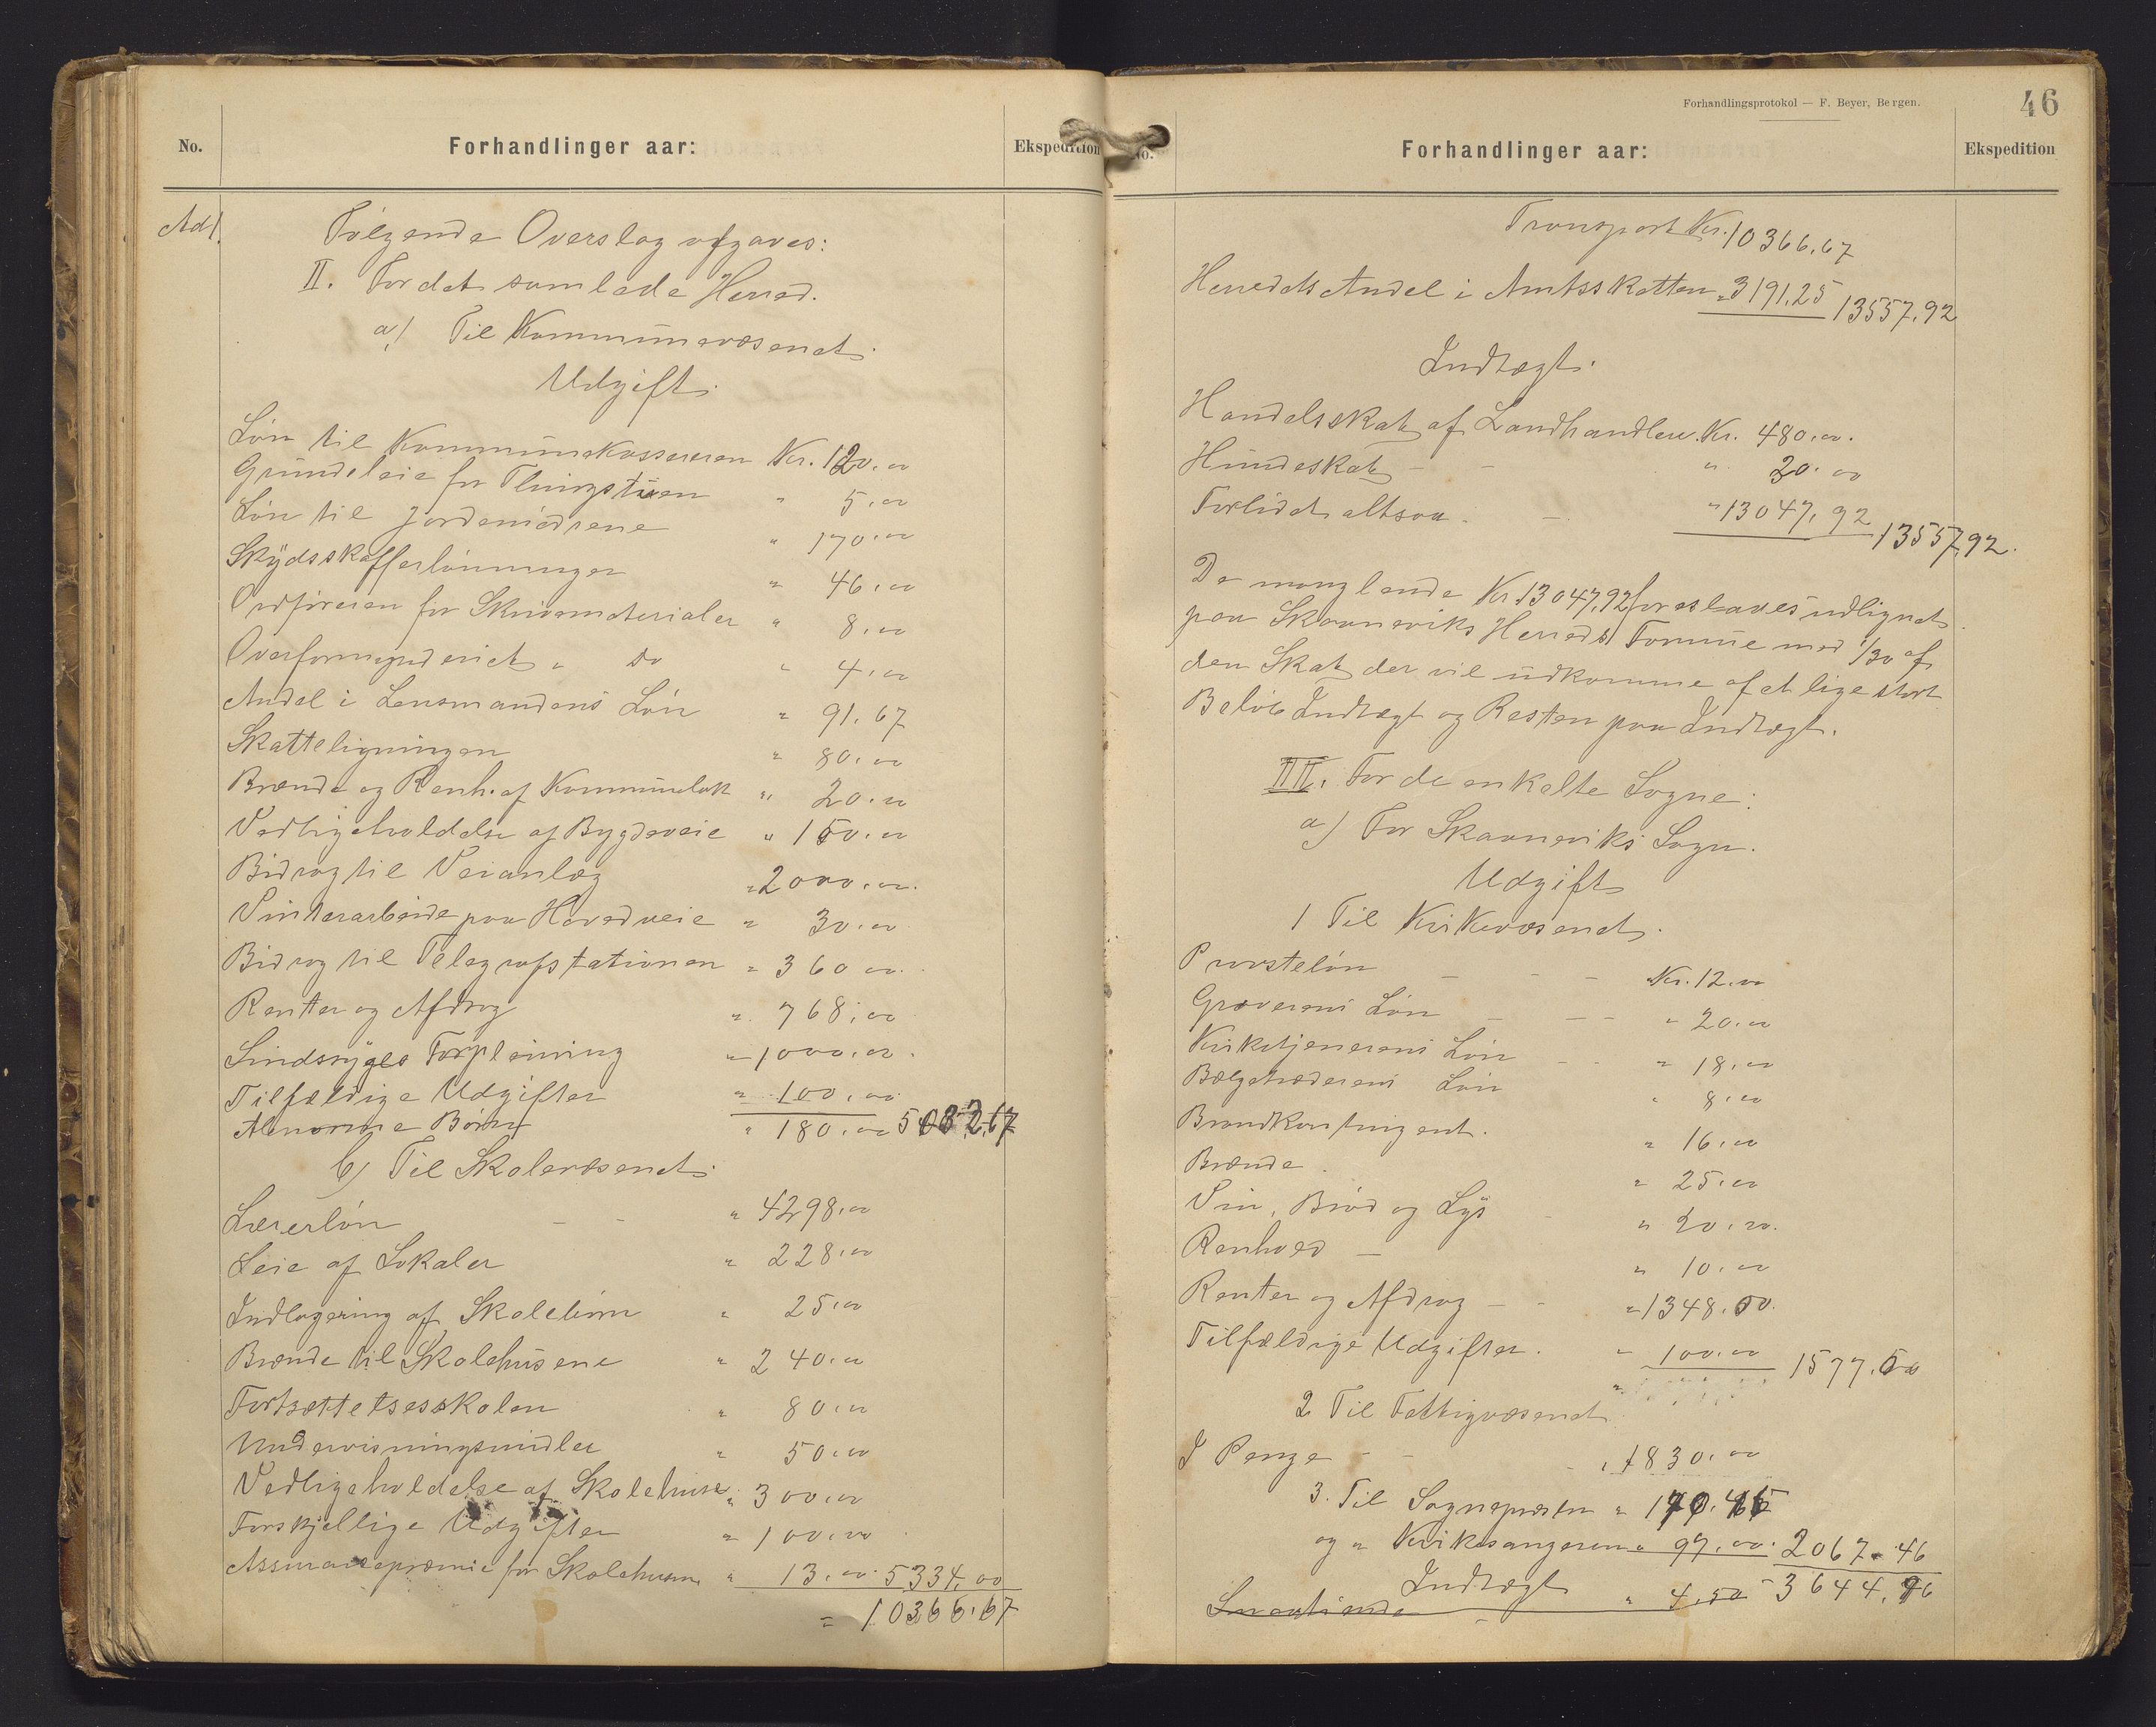 No.
Forhandlinger aar:
Ekspedition
Ad 1.
Følgende Overslag opgaves:
II. For det samlede Herred.
a) Til Kommunevæsenet.
Udgift.
Løn til Kommunekassereren Kr. 120.00
Grundeleie for Thingstuen " 5.00
Løn til Jordemødrene " 170.00
Skydsskafferlønninger " 46.00
Ordføreren for Skrivematerialer " 8.00
Overformynderiet " do " 4.00
Andel i Lensmandens Løn " 91.67
Skatteligningen " 80.00
Brænde og Renh. af Kommunelok " 20.00
Vedligeholdelse af Bygdeveie " 150.00
Bidrag til Veianlæg " 2000.00.
Vinterarbeide paa Hovedveie " 30.00
Bidrag til Telegrafstationen " 360.00.
Renter og Afdrag " 768.00
Sindssyges Forpleining " 1000.00.
Tilfældige Udgifter " 100.00
Abnorme Børn " 180.00 5032.67
b) Til Skolevæsenet.
Lærerløn - - " 4298.00
Leie af Lokaler " 228.00
Indlogering af Skolebørn " 25.00
Brænde til Skolehusene " 240.00
Fortsættelsesskolen " 80.00
Undervisningsmidler " 50.00
Vedligeholdelse af Skolehuse " 300.00
Forskjellige Udgifter " 100.00
Assurancepræmie for Skolehusene " 13.00 5334.00
" 10366.67
Forhandlingsprotokol — F. Beyer, Bergen.
46
No.
Forhandlinger aar:
Ekspedition
Transport Kr. 10366.67
Herredets Andel i Amtsskatten " 3191.25 13557.92
Indtægt.
Handelsskat af Landhandlere. Kr. 480.00.
Hundeskat - - " 30.00
Forlidet altsaa. - " 13047.92 13557.92.
De manglende Kr. 13047.92 foreslaaes udlignet
paa Skaaneviks Herreds Formue med 1/30 af
den Skat der vil udkomme af et lige stort
Beløb Indtægt og Resten paa Indtægt.
III. For de enkelte Sogne:
a) For Skaaneviks Sogn.
Udgift
1 Til Kirkevæsenet.
Provsteløn - - - Kr. 12.00
Graverens Løn - - - " 20.00
Kirketjenerens Løn - - " 18.00
Bælgetræderens Løn " 8.00
Brandkontingent. " 16.00
Brænde. " 25.00
Vin, Brød og Lys - " 20.00.
Renhold - " 10.00
Renter og Afdrag - - " 1348.50.
Tilfældige Udgifter. " 100.00 1577.50
2 Til Fattigvæsenet
I Penge - - - " 1830.00
3. Til Sognepresten "
og " Kirkesangeren " 97.00. 2067.46
Indtægt 3644.96
Smaatiende - " 4.50